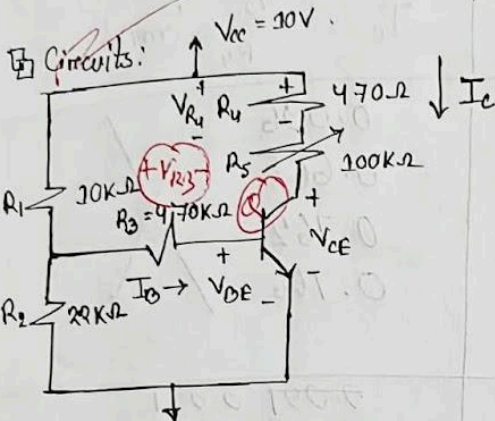 Vcc = 10V.
Circuits:
+ VR4 -
R4
+ -
470Ω
Ic
R5
100KΩ
R1
10KΩ
+VR3-
R3 = 470KΩ
Q
+ VCE -
IB →
+ VBE -
R2
22KΩ